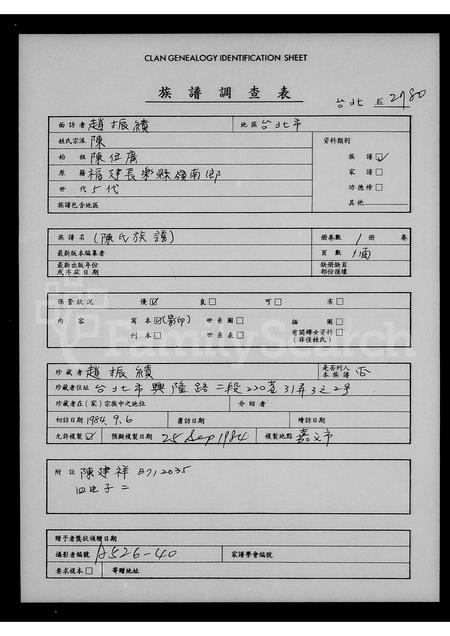 CLAN GENEALOGY IDENTIFICATION SHEET
族譜調查表
台北 2780
面訪者 趙振績 地區 台北市
姓氏宗派 陳 資料類別
始祖 陳伍廣 族譜☑
原籍 福建長樂縣嶺南鄉 家譜□
世代 5代 功德榜□
族譜包含地區 其他
族譜名 (陳氏族譜) 冊卷數 1 冊 卷
最新版本編纂者 頁數 1面
最新出版年份 缺冊缺頁
或序跋日期 部份損壞
保管狀況 優☑ 良□ 可□ 劣□
內容 寫本☑(影印) 世系圖□ 插圖□
刊本□ 世系表□ 有關婦女資料□
(非僅姓氏)
珍藏者 趙振績 是否列入本族譜 否
珍藏者住址 台北市興隆路二段220巷31弄3之2号
珍藏者在(家)宗族中之地位 介紹者
初訪日期 1984.9.6 覆訪日期 續訪日期
允許複製☑ 預擬複製日期 25 Sep 1984 複製地點 嘉文市
附註 陳建祥 8712035
四也子二
贈予者獎狀頒贈日期
攝影者編號 A526-40 家譜學會編號
要求複本□ 寄贈地址
FamilySearch